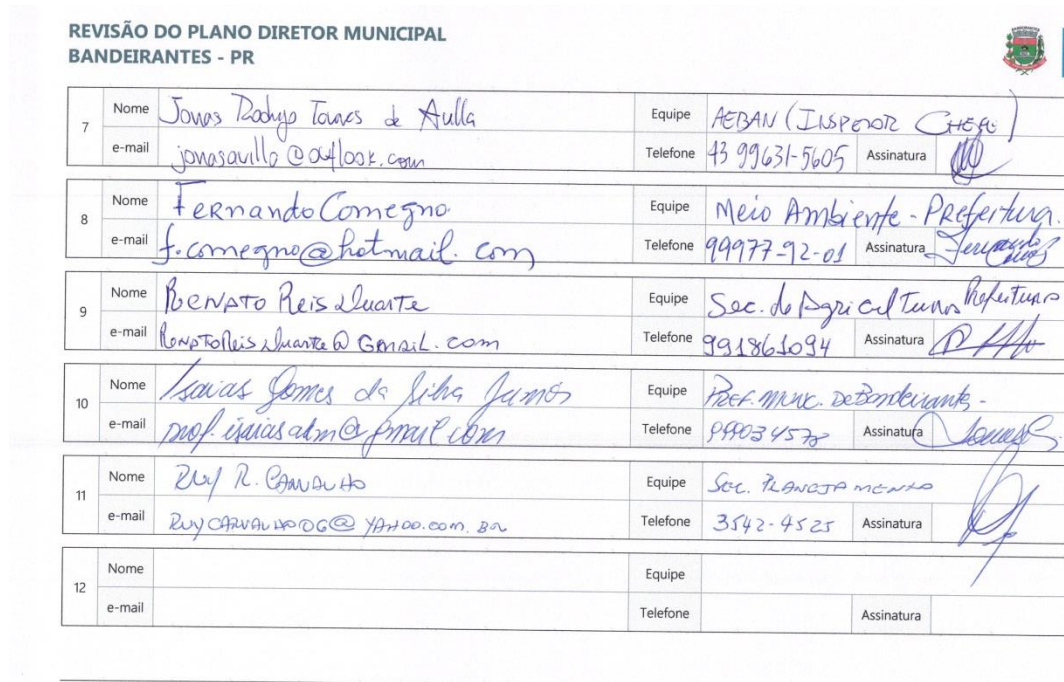 REVISÃO DO PLANO DIRETOR MUNICIPAL
BANDEIRANTES - PR
7 Nome Jonas Rodrigo Tavares de Aulla Equipe AEBAN (INSPETOR CHEFE)
e-mail jonasavilla@outlook.com Telefone 43 99631-5605 Assinatura
8 Nome Fernando Comegno Equipe Meio Ambiente - Prefeitura.
e-mail f.comegno@hotmail.com Telefone 99977-92-01 Assinatura Fernando
9 Nome RENATO Reis Duarte Equipe Sec. de Agricultura Prefeitura
e-mail RenatoReisduarte@GmaiL.com Telefone 991861094 Assinatura
10 Nome Isaias Gomes da Silva Junior Equipe Pref. Munic. De Bandeirantes -
e-mail prof.isaiasadm@gmail.com Telefone 999034578 Assinatura
11 Nome Ruy R. CARVALHO Equipe SEC. PLANEJAMENTO
e-mail RUYCARVALHO@YAHOO.com.BR Telefone 3542-4525 Assinatura
12 Nome Equipe
e-mail Telefone Assinatura